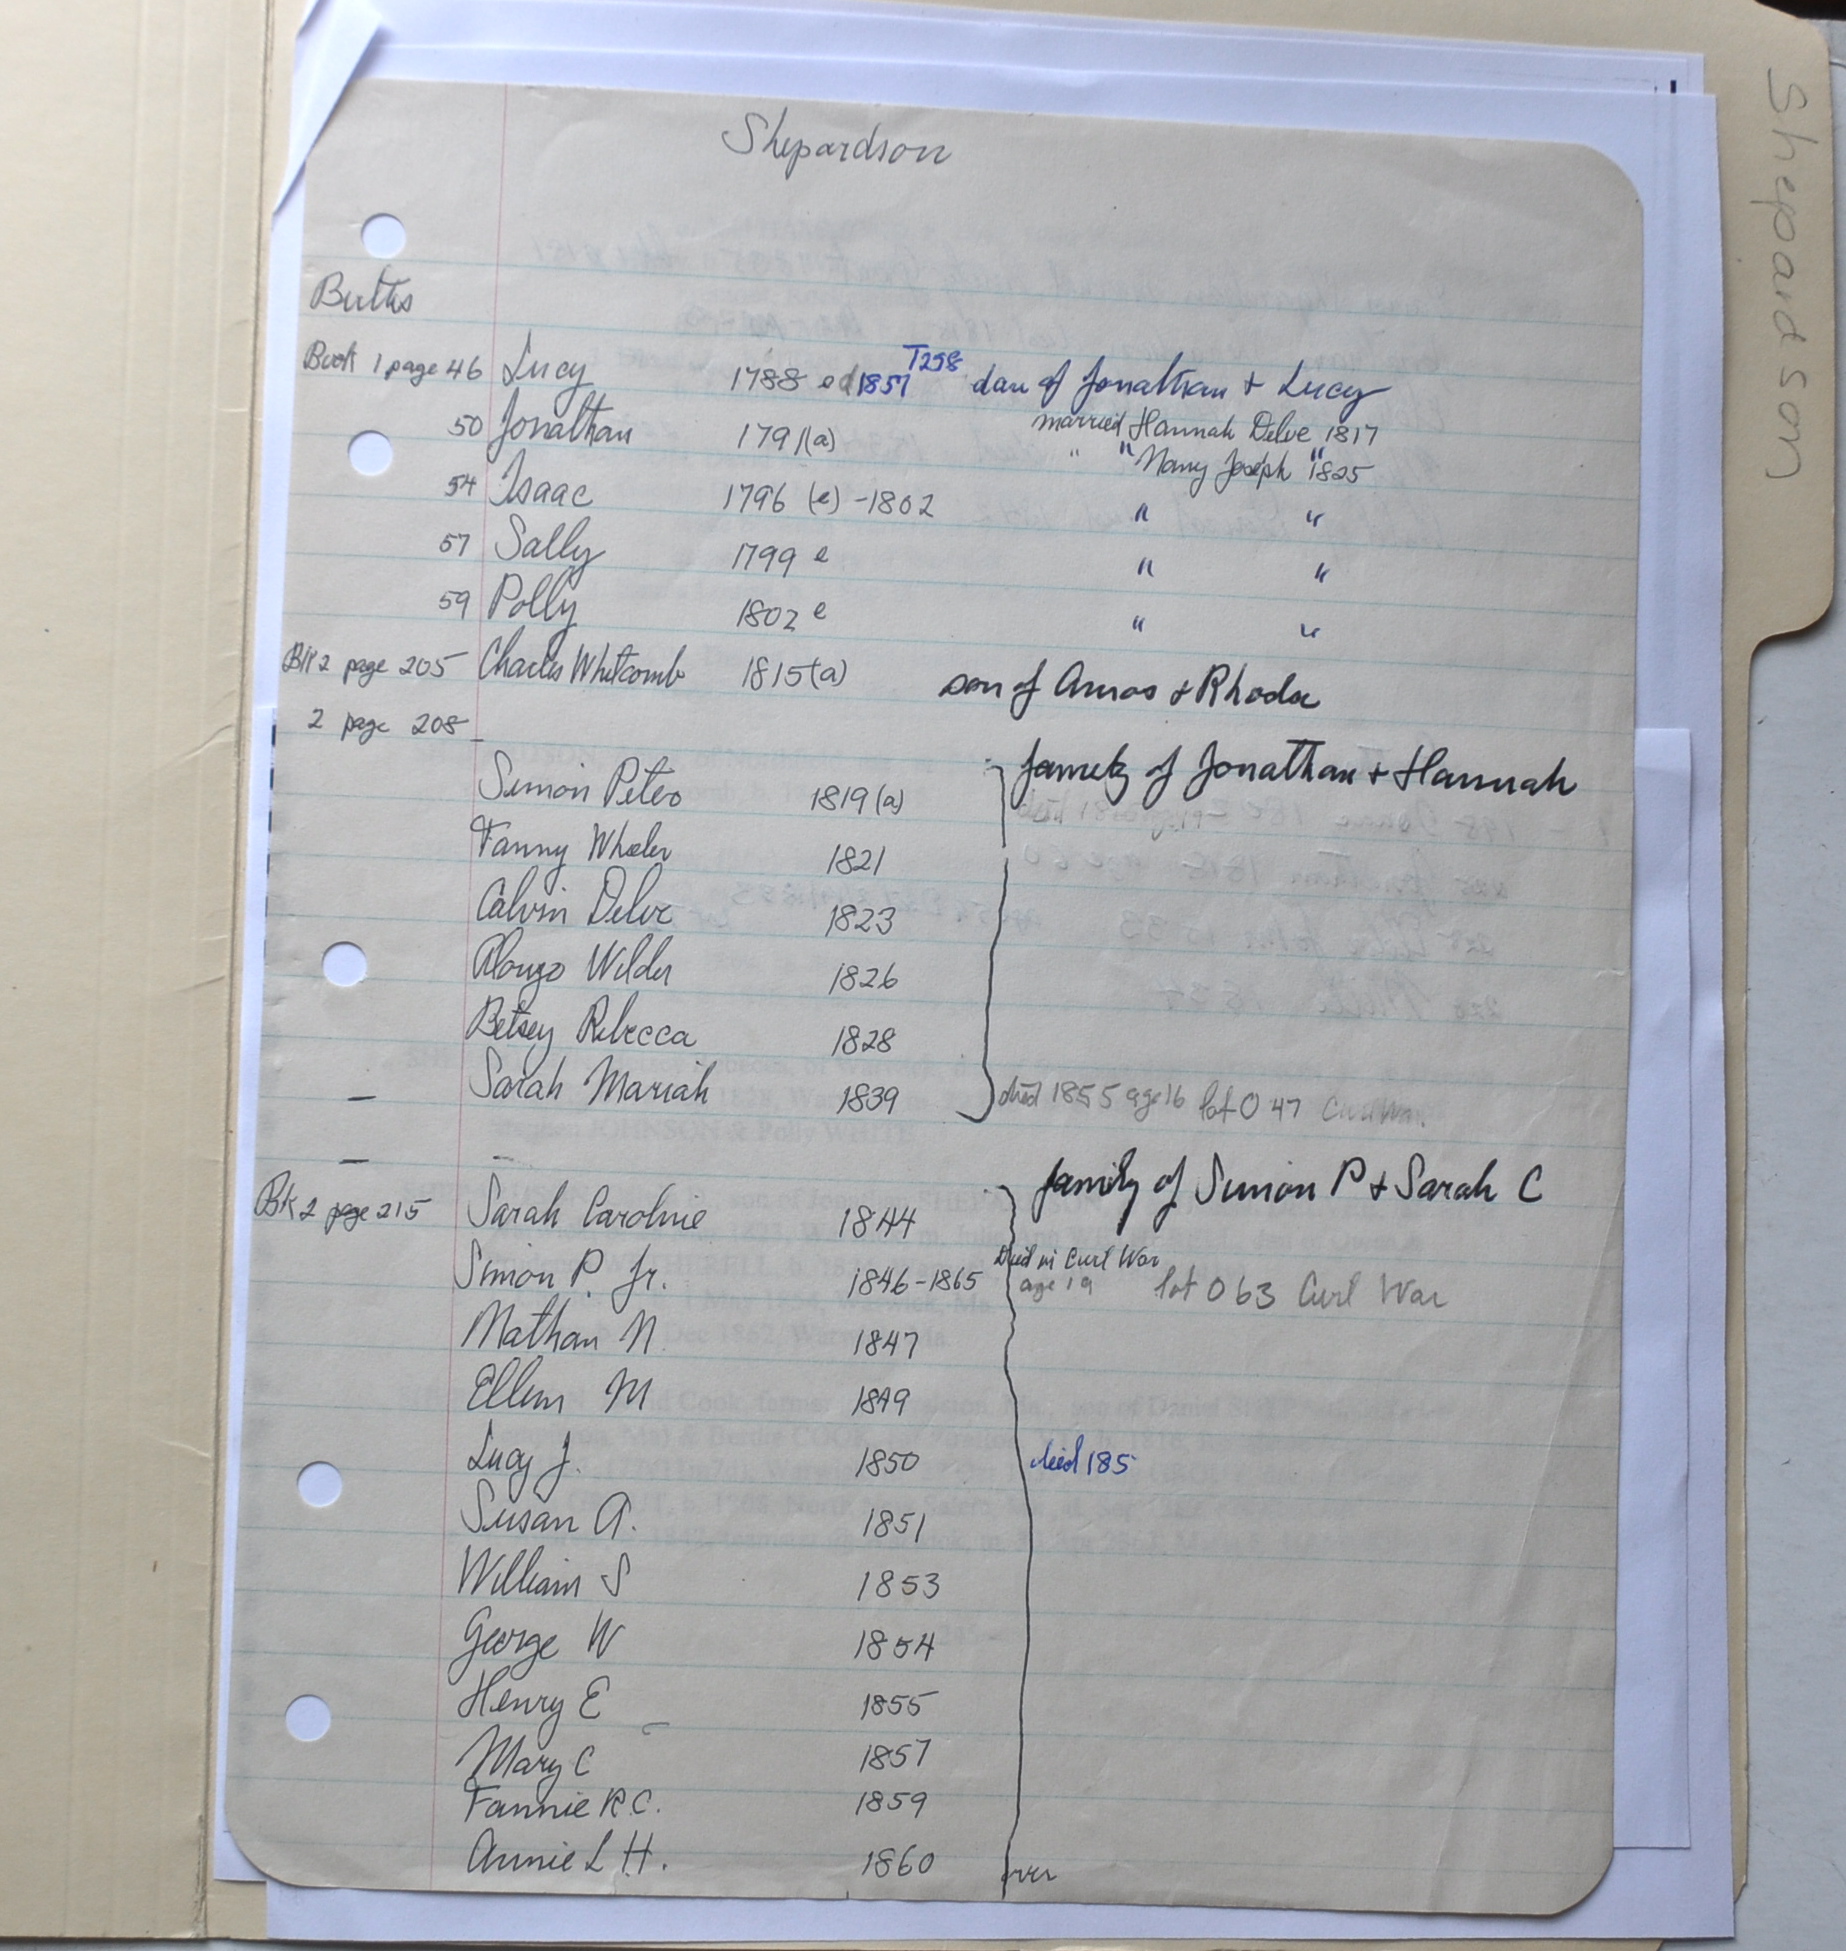 Shepardson
Shepardson
Births
Book 1 page 46 Lucy 1788 e d 1857 T298 dau of Jonathan + Lucy
50 Jonathan 1791(a) married Hannah Delve 1817
" " Nancy Joseph " 1825
54 Isaac 1796 (e) -1802 " "
57 Sally 1799 e " "
59 Polly 1802 e " "
Bk 2 page 205 Charles Whitcomb 1815(a) son of Amos + Rhoda
2 page 208
family of Jonathan + Hannah
Simon Peter 1819(a)
Fanny Wheeler 1821
Calvin Delve 1823
Alonzo Wilder 1826
Betsey Rebecca 1828
Sarah Mariah 1839 died 1855 age 16 lot O 47
family of Simon P + Sarah C
Bk 2 page 215 Sarah Caroline 1844
Simon P. Jr. 1846-1865 Died in Civil War
age 19 lot O 63 Civil War
Nathan N. 1847
Ellen M 1849
Lucy J. 1850 died 185
Susan A. 1851
William S 1853
George W 1854
Henry E 1855
Mary C 1857
Fannie R.C. 1859
Annie L H. 1860 over